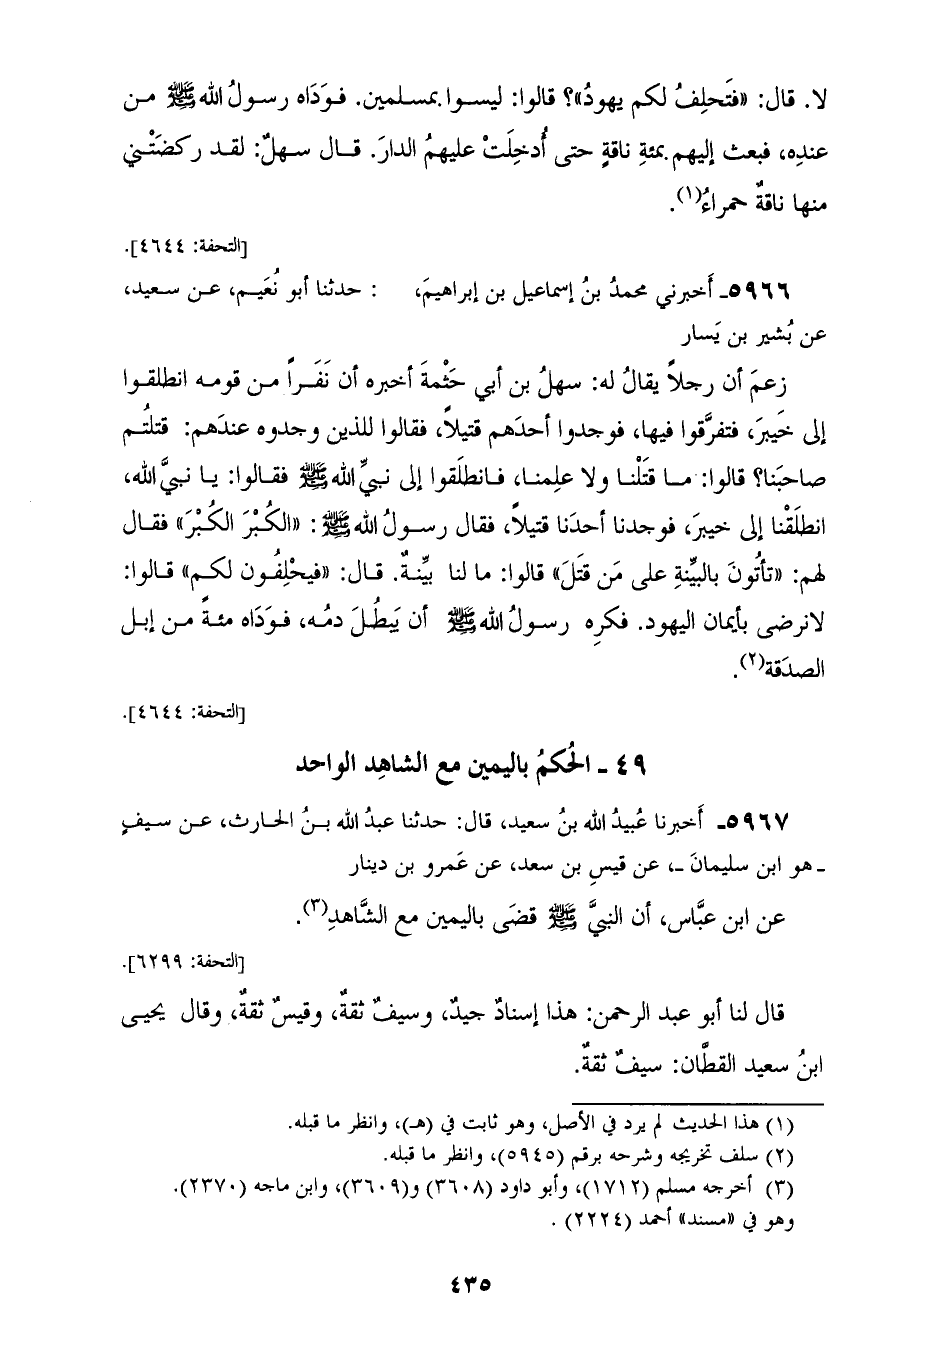 لا. قال: «فتَحلِفُ لكم يهودُ»؟ قالوا: ليسوا بمسلمين. فوَدَاه رسولُ الله ﷺ من
عندِه، فبعث إليهم بمئةِ ناقةٍ حتى أُدخِلَتْ عليهمُ الدارَ. قال سهلٌ: لقد ركضَتْني
منها ناقةٌ حمراءُ(١).
[التحفة: ٤٦٤٤].
٥٩٦٦ـ أَخبرني محمدُ بنُ إسماعيل بن إبراهيمَ، : حدثنا أبو نُعَيم، عن سعيد،
عن بُشير بن يَسار
زعمَ أن رجلاً يقالُ له: سهلُ بن أبي حَثْمةَ أخبره أن نَفَراً من قومه انطلقوا
إلى خَيبرَ، فتفرَّقوا فيها، فوجدوا أحدَهم قتيلاً، فقالوا للذين وجدوه عندَهم: قتلتُم
صاحبَنا؟ قالوا: ما قتَلْنا ولا علِمنا، فانطلَقوا إلى نبيِّ الله ﷺ فقالوا: يا نبيَّ الله،
انطلَقْنا إلى خيبرَ، فوجدنا أحدَنا قتيلاً، فقال رسولُ الله ﷺ: «الكُبْرَ الكُبْرَ» فقال
لهم: «تأتُونَ بالبيِّنةِ على مَن قتَلَ» قالوا: ما لنا بيِّنةٌ. قال: «فيحْلِفُون لكم» قالوا:
لانرضى بأيمان اليهود. فكرِه رسولُ الله ﷺ أن يَبطُلَ دمُه، فوَدَاه مئةً من إبل
الصدَقة(٢).
[التحفة: ٤٦٤٤].
٤٩ ـ الحُكمُ باليمين مع الشاهِد الواحد
٥٩٦٧ـ أَخبرنا عُبيدُ الله بنُ سعيد، قال: حدثنا عبدُ الله بنُ الحارث، عن سيفٍ
ـ هو ابن سليمانَ ـ، عن قيسِ بن سعد، عن عَمرو بن دينار
عن ابن عبَّاس، أن النبيَّ ﷺ قضَى باليمين مع الشَّاهدِ(٣).
[التحفة: ٦٢٩٩].
قال لنا أبو عبد الرحمن: هذا إسنادٌ جيدٌ، وسيفٌ ثقةٌ، وقيسٌ ثقةٌ، وقال يحيى
ابنُ سعيد القطَّان: سيفٌ ثقةٌ.
(١) هذا الحديث لم يرد في الأصل، وهو ثابت في (هـ)، وانظر ما قبله.
(٢) سلف تخريجه وشرحه برقم (٥٩٤٥)، وانظر ما قبله.
(٣) أخرجه مسلم (١٧١٢)، وأبو داود (٣٦٠٨) و(٣٦٠٩)، وابن ماجه (٢٣٧٠).
وهو في «مسند» أحمد (٢٢٢٤) .
٤٣٥